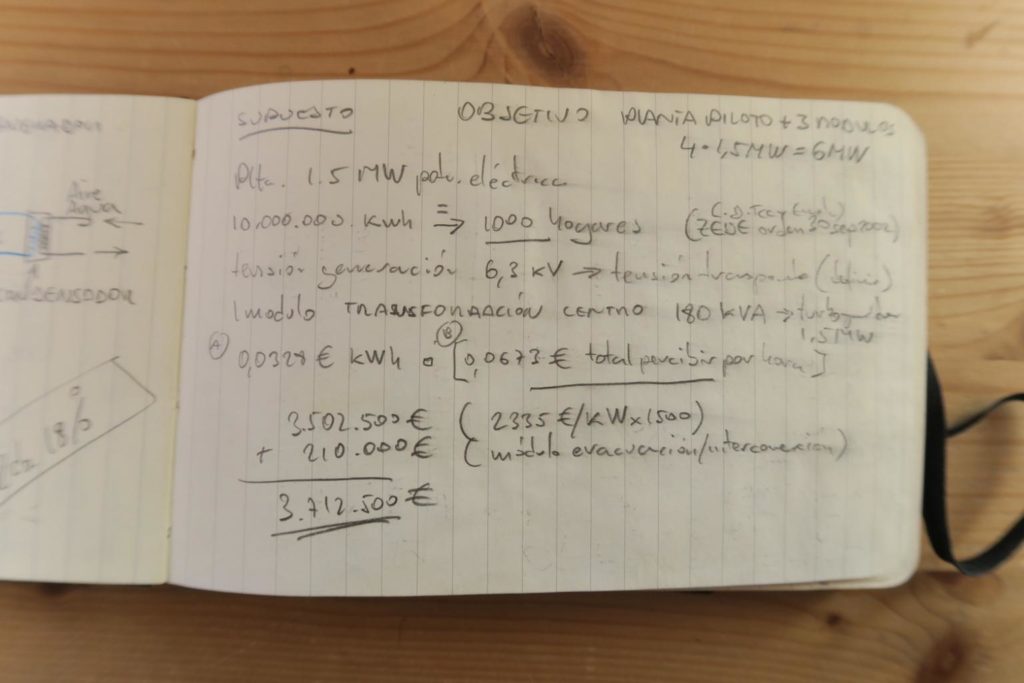 Aire
CONDENSADOR
18%
SUPUESTO OBJETIVO PLANTA PILOTO + 3 MODULOS
4 · 1,5MW = 6MW
Plta. 1.5 MW pot. eléctrica
10.000.000 kwh = ⇒ 1000 hogares (ZEDE orden 30 sep 2002)
tensión generación 6,3 KV → tensión transporte (definir)
1 modulo TRANSFORMACIÓN CENTRO 180 KVA →
1,5MW
(A) 0,0328 € kWh o (B) [0,0673 € total percibir por hora]
3.502.500 € ( 2335 €/KW x 1500)
+ 210.000 € ( módulo evacuación/interconexión)
3.712.500 €